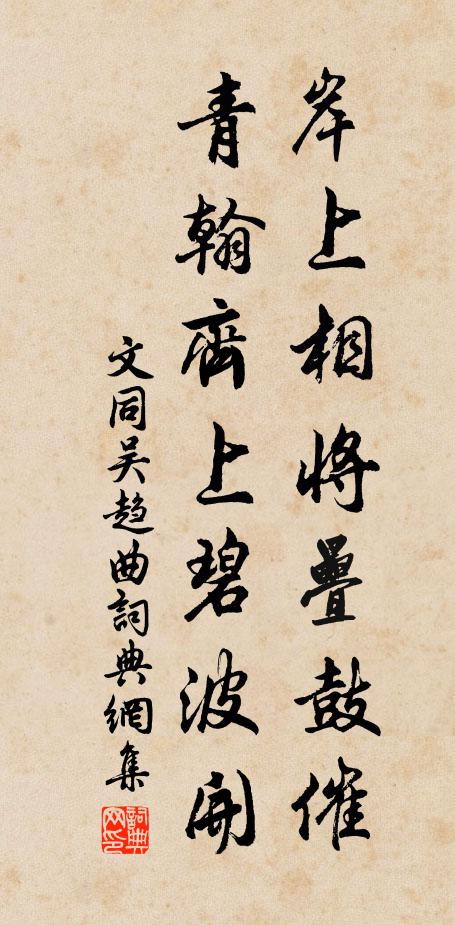 岸上相將疊鼓催
青翰齊上碧波開
文同吴趋曲詞典網集
詞典网印